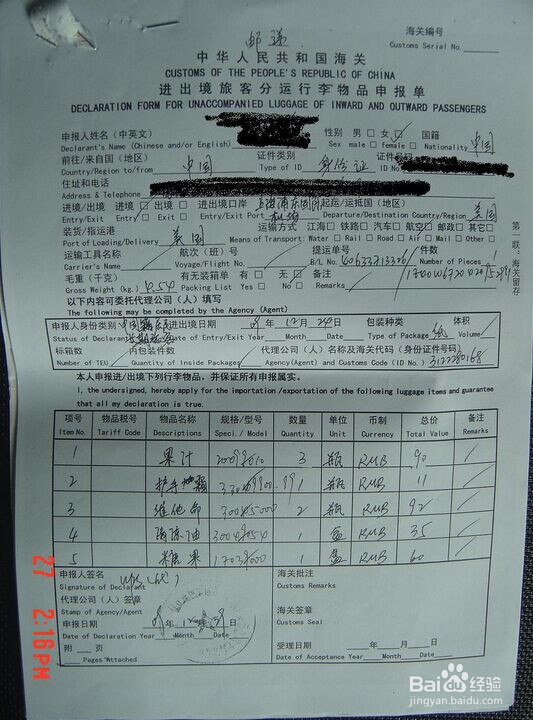 邮递
海关编号
Customs Serial No.
中华人民共和国海关
CUSTOMS OF THE PEOPLE'S REPUBLIC OF CHINA
进出境旅客分运行李物品申报单
DECLARATION FORM FOR UNACCOMPANIED LUGGAGE OF INWARD AND OUTWARD PASSENGERS
申报人姓名(中英文) 性别 男□ 女□ 国籍
Declarant's Name (Chinese and/or English) Sex male □ female □ Nationality 中国
前往/来自国(地区) 证件类别 证件号码
Country/Region to/from 中国 Type of ID 身份证 ID No
住址和电话
Address & Telephone
进境/出境 进境□ 出境□ 进出境口岸 上海浦东国际机场 起运/运抵国(地区)
Entry/Exit Entry□ Exit □ Entry/Exit Port Departure/Destination Country/Region 美国
装货/指运港 运输方式 江海□ 铁路□ 汽车□ 航空□ 邮政□ 其它□
Port of Loading/Delivery 美国 Means of Transport: Water □ Rail □ Road □ Air □ Mail □ Other □
运输工具名称 航次(班)号 提运单号 件数
Carrier's Name Voyage/Flight No. B/L No. Number of Pieces 1
毛重(千克) 有无装箱单 有□ 无□ 备注
Gross Weight (kg.) 4.54 Packing List Yes □ No □ Remarks
以下内容可委托代理公司(人)填写
The following may be completed by the Agency (Agent)
申报人身份类别 进出境日期 年 12 月 日 包装种类 体积
Status of Declarant Date of Entry/Exit Year Month Date Type of Package 纸 Volume
标箱数 内包装件数 代理公司(人)名称及海关代码(身份证件号码)
Number of TEU Quantity of Inside Packages Agency(Agent) and Customs Code (ID No.) 3122280168
本人申报进/出境下列行李物品,并保证所有申报属实。
I, the undersigned, hereby apply for the importation/exportation of the following luggage items and guarantee
that all my declaration is true.
项号 物品税号 物品名称 规格/型号 数量 单位 币制 总价 备注
Item No. Tariff Code Descriptions Speci./ Model Quantity Unit Currency Total Value Remarks
1 果汁 3 瓶 RMB 90
2 护手霜 1 瓶 RMB 11
3 维他命 2 瓶 RMB 92
4 清凉油 1 盒 RMB 35
5 糖果 1 盒 RMB 60
申报人签名 海关批注
Signature of Declarant Customs Remarks
代理公司(人)签章
Stamp of Agency/Agent 海关签章
Customs Seal
申报日期 年 月 日
Date of Declaration Year Month Date 受理日期 年 月 日
附 页 Date of Acceptance Year Month Date
Pages Attached
第一联:海关留存
27 2:16PM
Baidu经验
jingyan.baidu.com